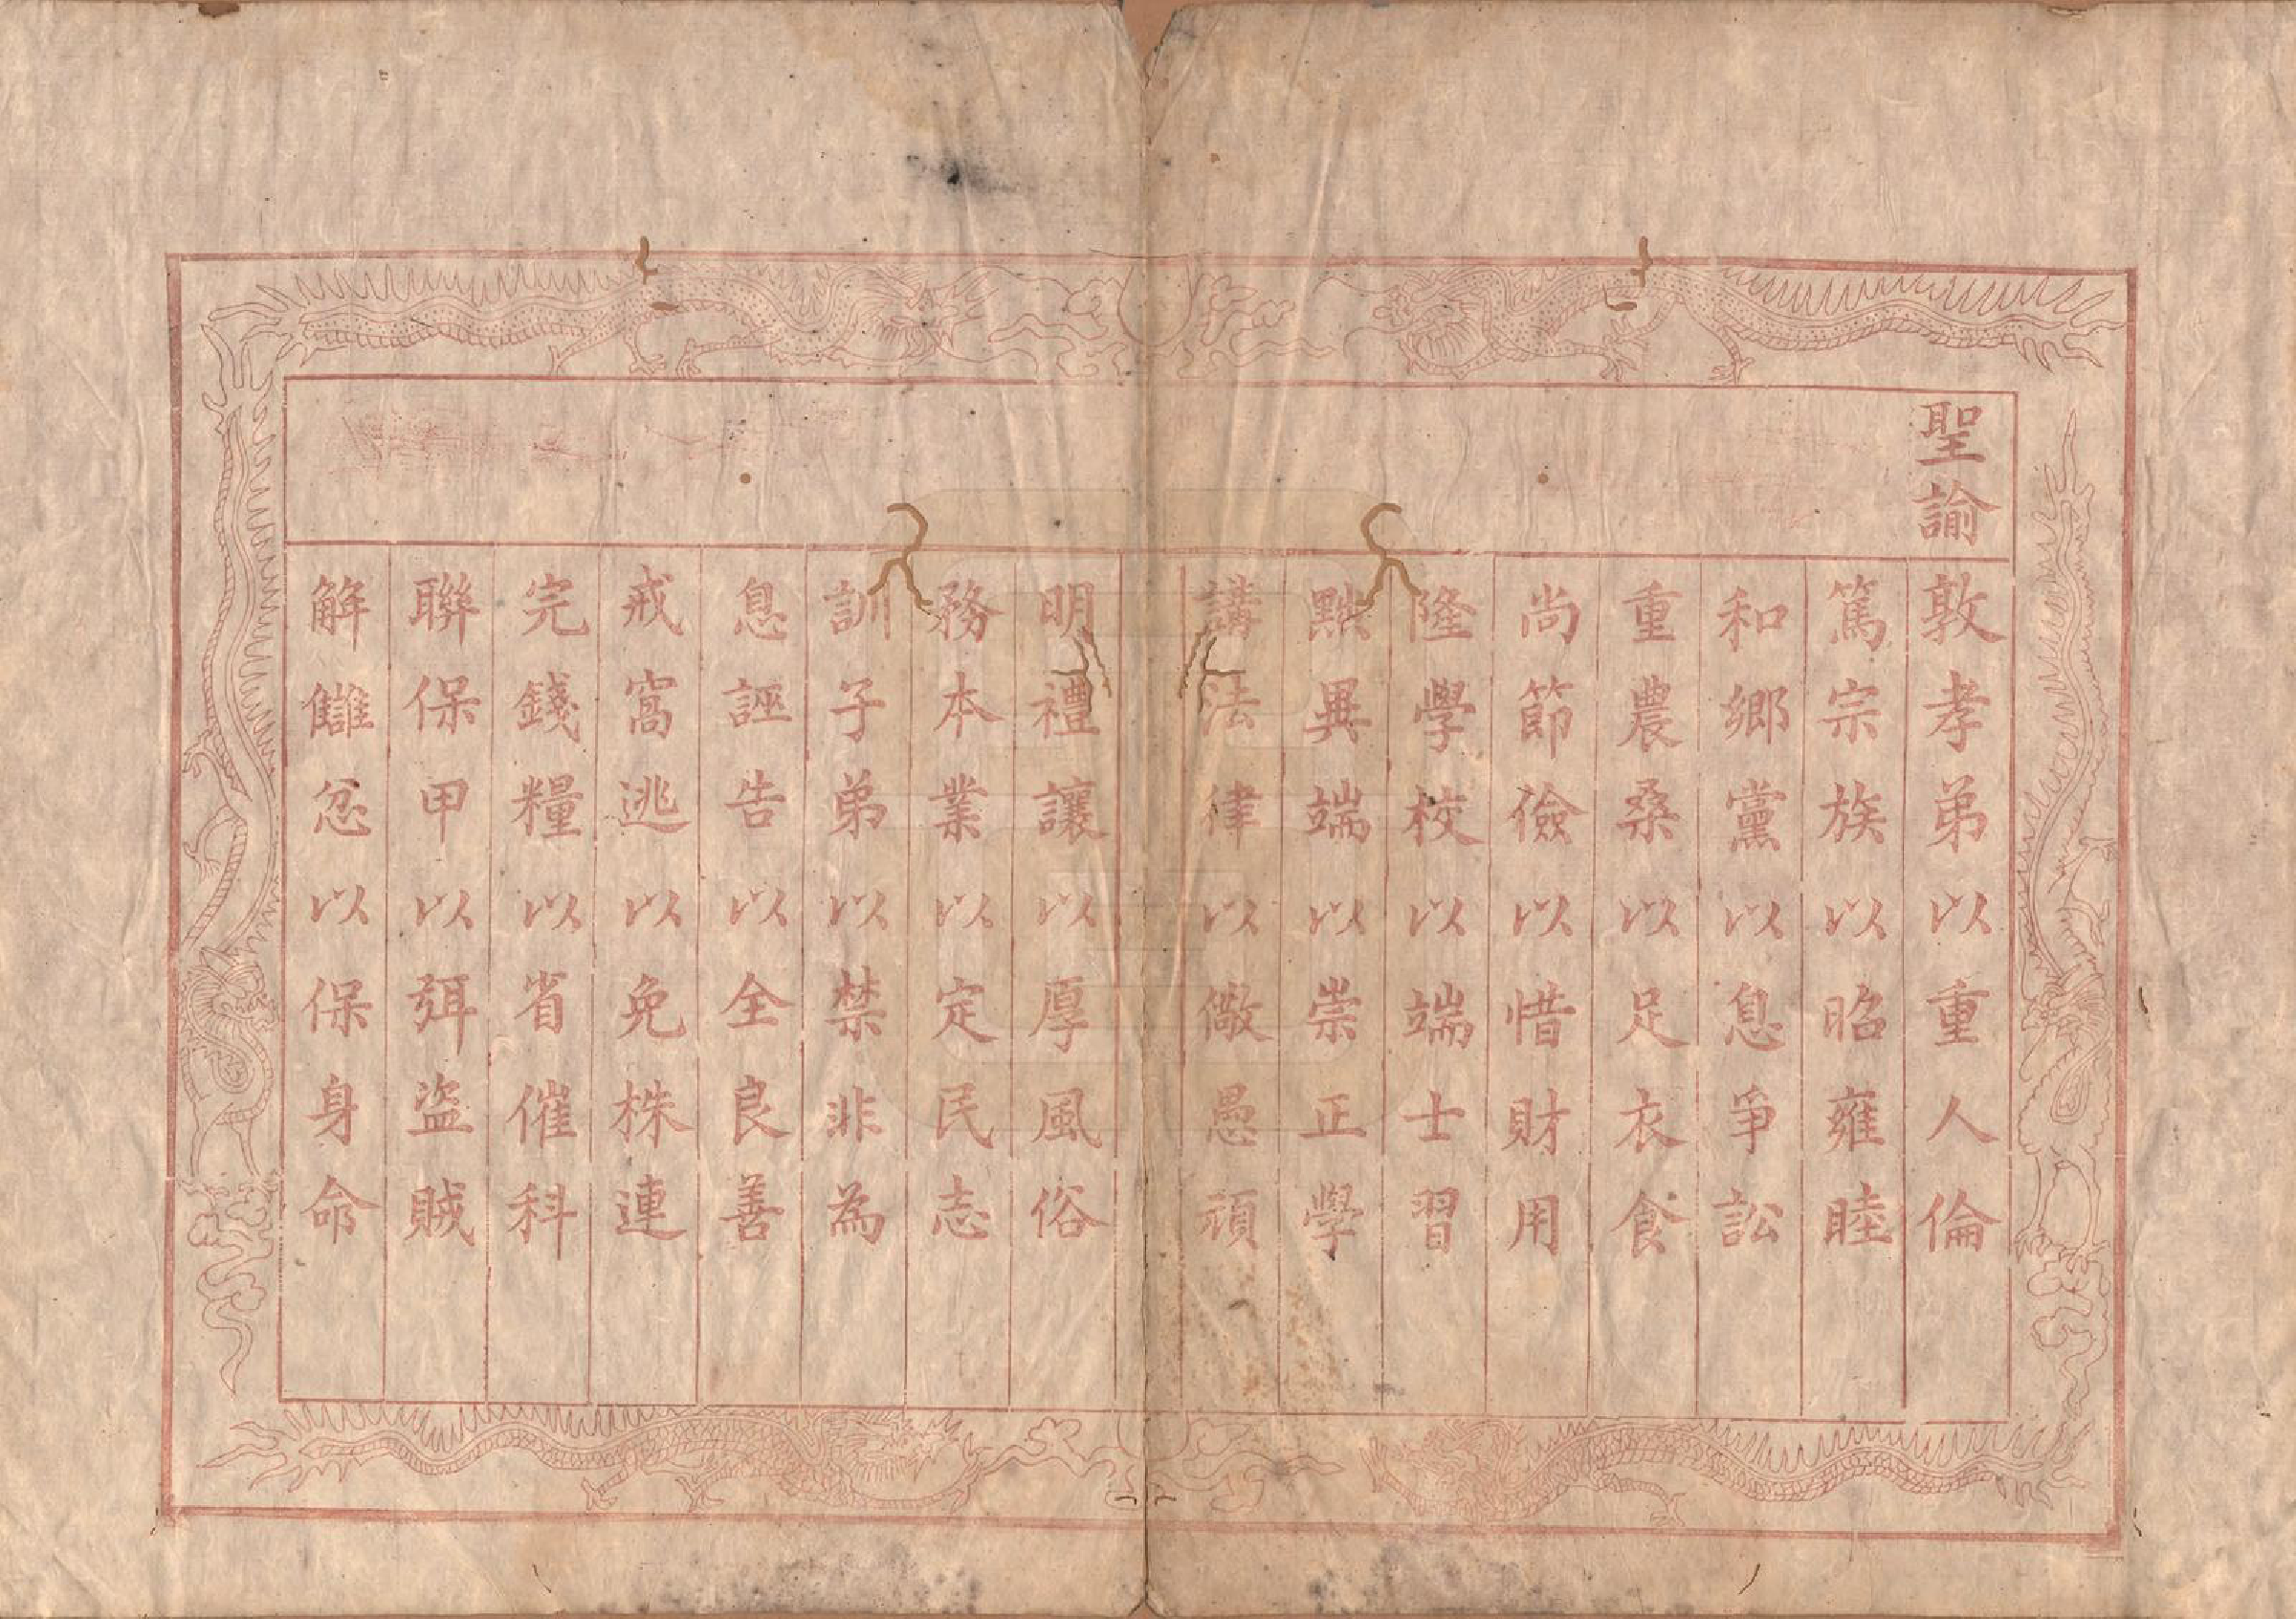 聖諭
敦孝弟以重人倫
篤宗族以昭雍睦
和鄉黨以息爭訟
重農桑以足衣食
尚節儉以惜財用
隆學校以端士習
黜異端以崇正學
講法律以儆愚頑
明禮讓以厚風俗
務本業以定民志
訓子弟以禁非為
息誣告以全良善
戒窩逃以免株連
完錢糧以省催科
聯保甲以弭盜賊
解讎忿以保身命